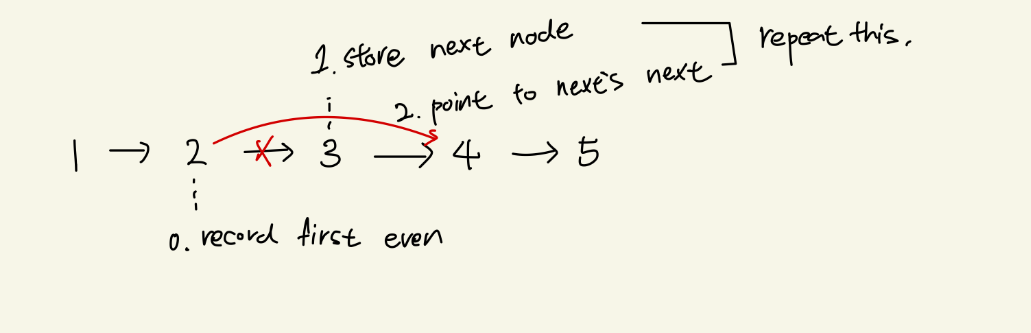 1. store next node
2. point to next's next
repeat this.
1 → 2 → 3 → 4 → 5
0. record first even